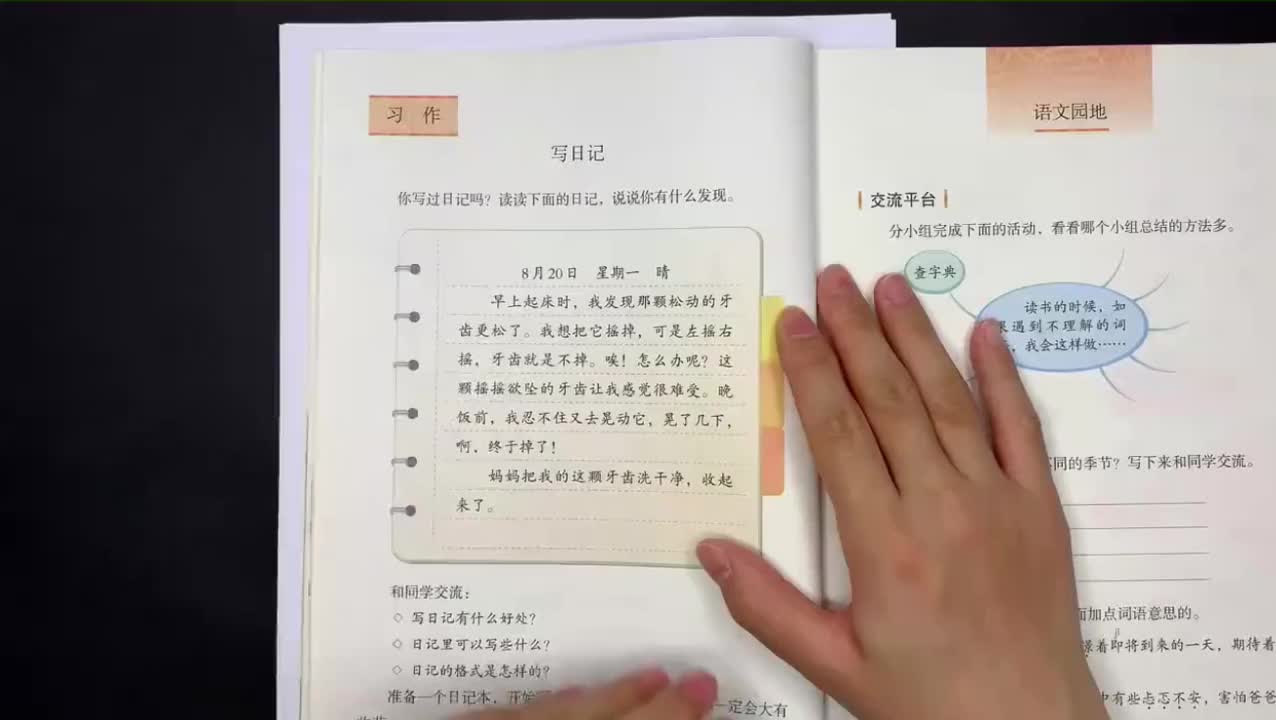 习 作
写日记
你写过日记吗？读读下面的日记，说说你有什么发现。
8月20日 星期一 晴
早上起床时，我发现那颗松动的牙
齿更松了。我想把它摇掉，可是左摇右
摇，牙齿就是不掉。唉！怎么办呢？这
颗摇摇欲坠的牙齿让我感觉很难受。晚
饭前，我忍不住又去晃动它，晃了几下，
啊，终于掉了！
妈妈把我的这颗牙齿洗干净，收起
来了。
和同学交流：
◇ 写日记有什么好处？
◇ 日记里可以写些什么？
◇ 日记的格式是怎样的？
准备一个日记本，开始
一定会大有
语文园地
交流平台
分小组完成下面的活动，看看哪个小组总结的方法多。
查字典
读书的时候，如
果遇到不理解的词
，我会这样做……
同的季节？写下来和同学交流。
面加点词语意思的。
着即将到来的一天，期待着
中有些忐忑不安，害怕爸爸